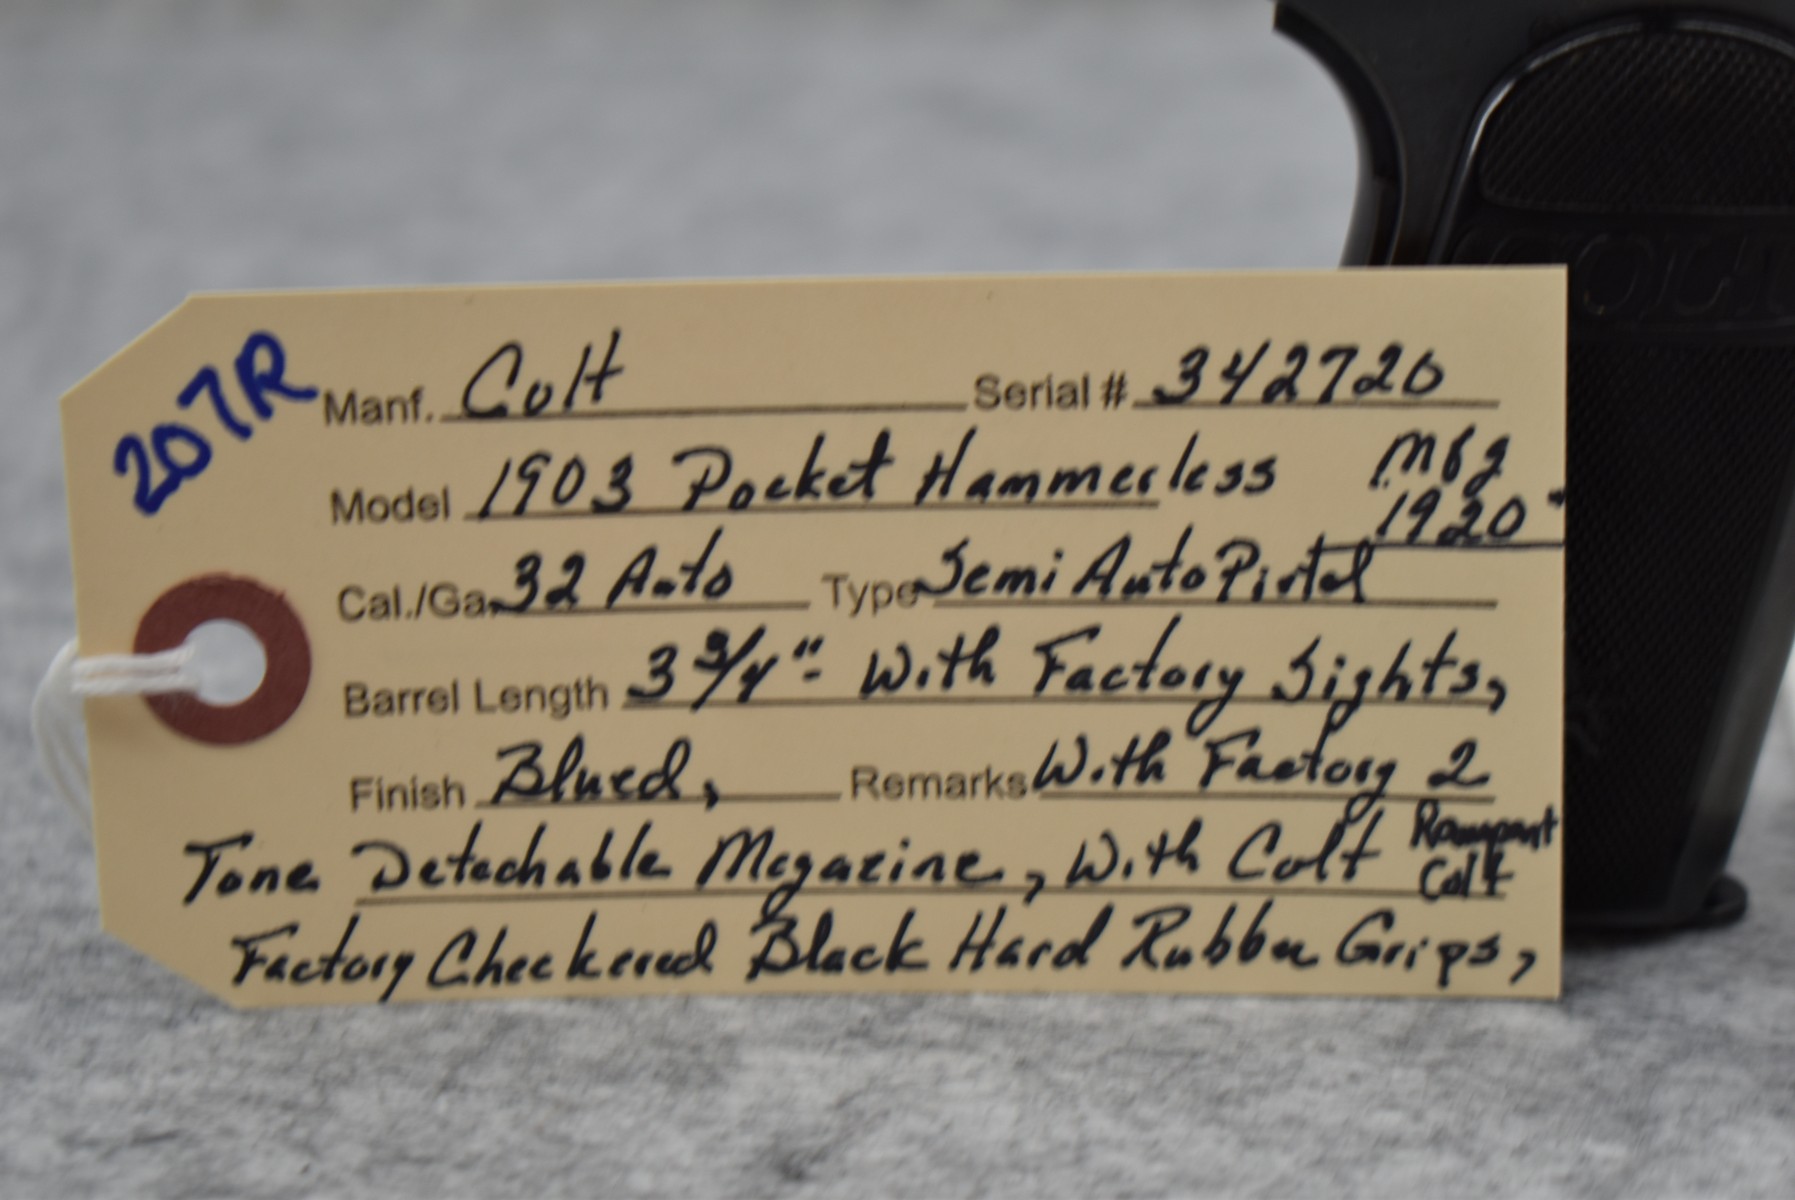 207R
Manf. Colt Serial # 342720
Model 1903 Pocket Hammerless Mfg
"1920"
Cal./Ga. 32 Auto Type Semi Auto Pistol
Barrel Length 3 3/4" - With Factory Sights,
Finish Blued, Remarks With Factory 2
Tone Detachable Magazine, With Colt Rampant
Colt
Factory Checkered Black Hard Rubber Grips,
COLT